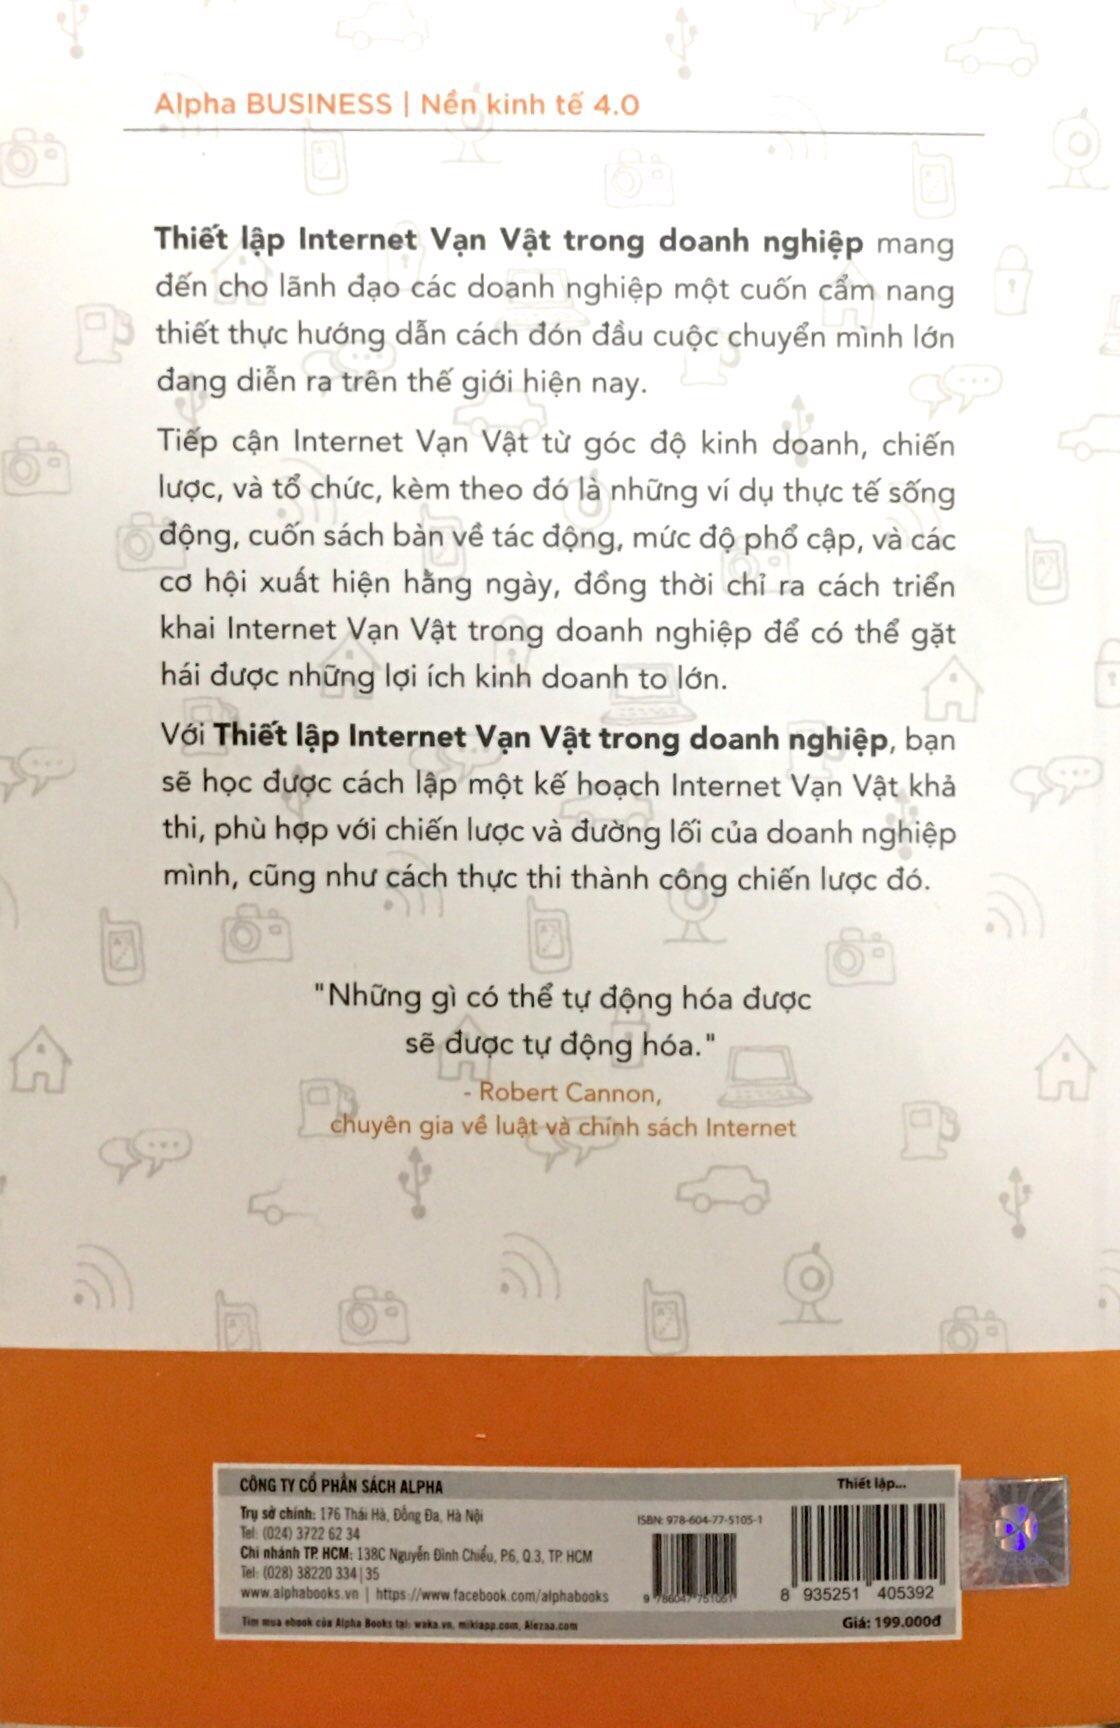 Alpha BUSINESS | Nền kinh tế 4.0
Thiết lập Internet Vạn Vật trong doanh nghiệp mang
đến cho lãnh đạo các doanh nghiệp một cuốn cẩm nang
thiết thực hướng dẫn cách đón đầu cuộc chuyển mình lớn
đang diễn ra trên thế giới hiện nay.
Tiếp cận Internet Vạn Vật từ góc độ kinh doanh, chiến
lược, và tổ chức, kèm theo đó là những ví dụ thực tế sống
động, cuốn sách bàn về tác động, mức độ phổ cập, và các
cơ hội xuất hiện hằng ngày, đồng thời chỉ ra cách triển
khai Internet Vạn Vật trong doanh nghiệp để có thể gặt
hái được những lợi ích kinh doanh to lớn.
Với Thiết lập Internet Vạn Vật trong doanh nghiệp, bạn
sẽ học được cách lập một kế hoạch Internet Vạn Vật khả
thi, phù hợp với chiến lược và đường lối của doanh nghiệp
mình, cũng như cách thực thi thành công chiến lược đó.
"Những gì có thể tự động hóa được
sẽ được tự động hóa."
- Robert Cannon,
chuyên gia về luật và chính sách Internet
CÔNG TY CỔ PHẦN SÁCH ALPHA
Thiết lập...
Trụ sở chính: 176 Thái Hà, Đống Đa, Hà Nội
Tel: (024) 3722 62 34
Chi nhánh TP. HCM: 138C Nguyễn Đình Chiểu, P.6, Q.3, TP. HCM
Tel: (028) 38220 334 | 35
www.alphabooks.vn | https://www.facebook.com/alphabooks
ISBN: 978-604-77-5105-1
9 786047 751051
8 935251 405392
Tìm mua ebook của Alpha Books tại: waka.vn, mikiapp.com, Alezaa.com
Giá: 199.000đ